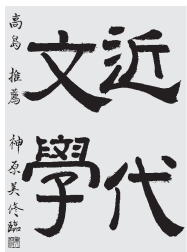 近代
文學
高島 推薦 神原美修臨